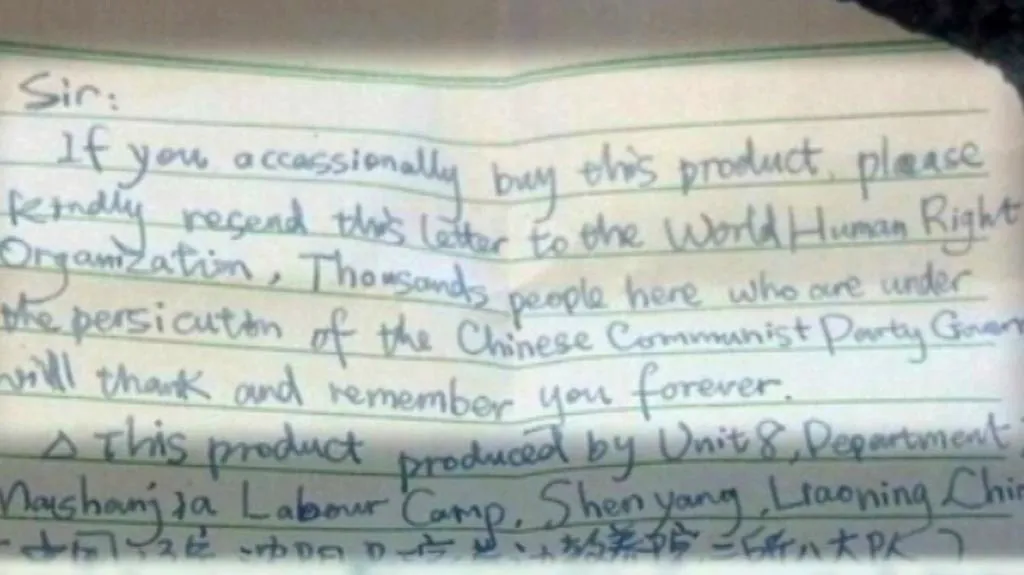 Sir:
If you occassionally buy this product, please
kindly resend this letter to the World Human Right
Organization, Thousands people here who are under
the persicution of the Chinese Communist Party Govern
will thank and remember you forever.
△ This product produced by Unit 8, Department
Mashanjia Labour Camp, Shenyang, Liaoning, Chin